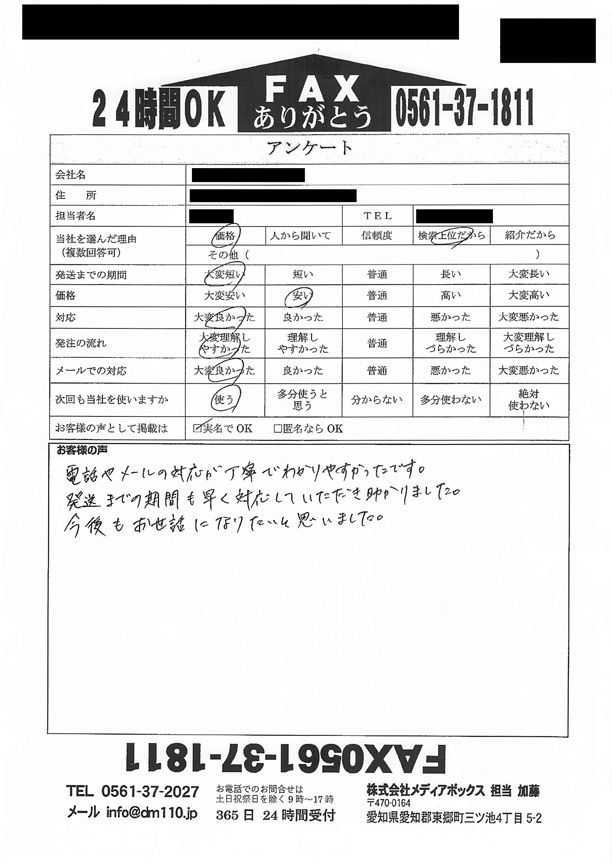 24時間OK
FAX
ありがとう
0561-37-1811
アンケート
会社名
住　所
担当者名　TEL
当社を選んだ理由
(複数回答可)
価格　人から聞いて　信頼度　検索上位だから　紹介だから
その他（　　　）
発送までの期間　大変短い　短い　普通　長い　大変長い
価格　大変安い　安い　普通　高い　大変高い
対応　大変良かった　良かった　普通　悪かった　大変悪かった
発注の流れ　大変理解しやすかった　理解しやすかった　普通　理解しづらかった　大変理解しづらかった
メールでの対応　大変良かった　良かった　普通　悪かった　大変悪かった
次回も当社を使いますか　使う　多分使うと思う　分からない　多分使わない　絶対使わない
お客様の声として掲載は　☑実名でOK　□匿名ならOK
お客様の声
電話やメールの対応が丁寧でわかりやすかったです。
発送までの期間も早く対応していただき助かりました。
今後もお世話になりたいと思いました。
FAX0561-37-1811
TEL 0561-37-2027
メール info@dm110.jp
お電話でのお問合せは
土日祝祭日を除く9時～17時
365日 24時間受付
株式会社メディアボックス 担当 加藤
〒470-0164
愛知県愛知郡東郷町三ツ池4丁目5-2